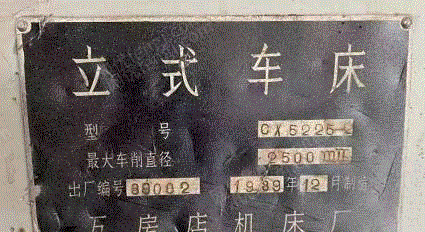 立式车床
型 号 CX5225
最大车削直径 2500mm
出厂编号 89002 1989年12月制造
瓦房店机床厂